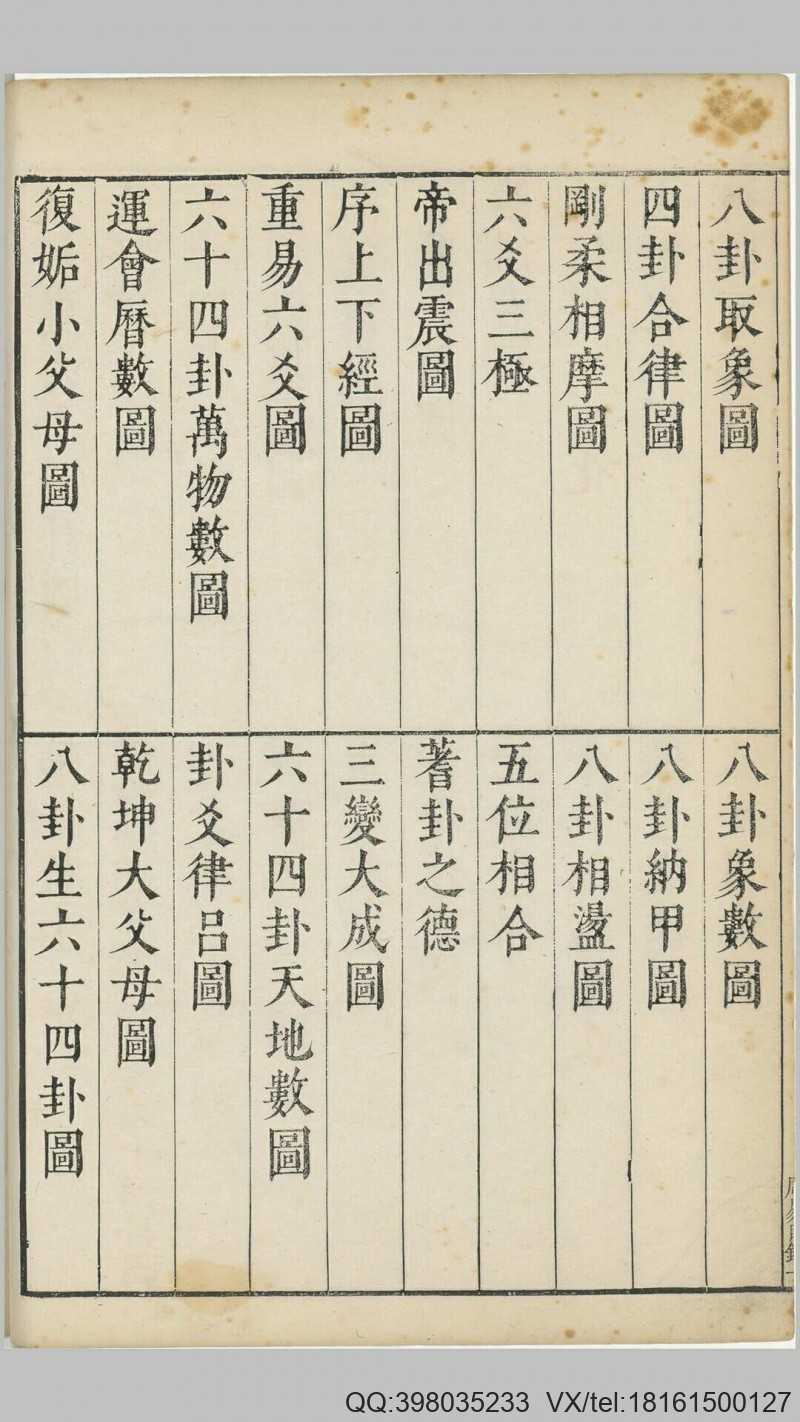 八卦取象圖
八卦象數圖
四卦合律圖
八卦納甲圖
剛柔相摩圖
八卦相盪圖
六爻三極
五位相合
帝出震圖
蓍卦之德
序上下經圖
三變大成圖
重易六爻圖
六十四卦天地數圖
六十四卦萬物數圖
卦爻律呂圖
運會曆數圖
乾坤大父母圖
復姤小父母圖
八卦生六十四卦圖
QQ:398035233 VX/tel:18161500127